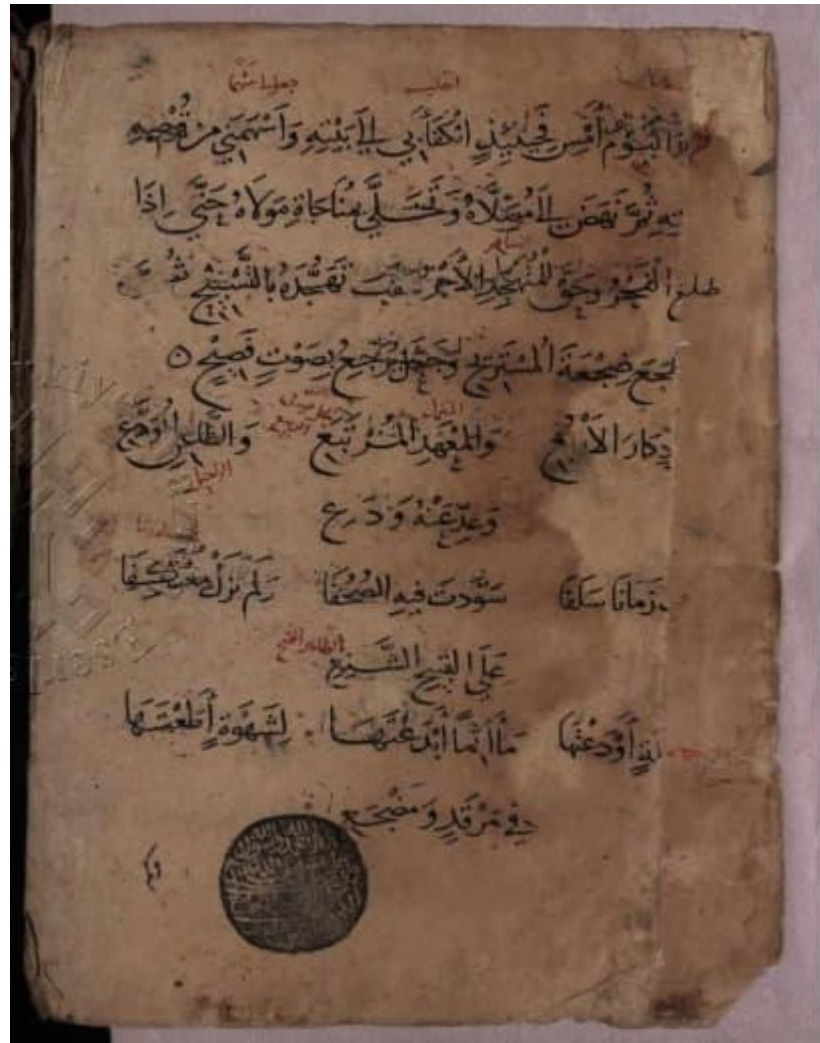 انقلب جعل لي سهما
كيوم أمس فَحِينَئِذٍ انْكَفَأَ بِي إِلَى بَيْتِهِ وَأَسْهَمَنِي مِنْ قُرْصِهِ
ته ثُمَّ نَهَضَ إِلَى مُصَلَّاهُ وَتَخَلَّى بِمُنَاجَاةِ مَوْلَاهُ حَتَّى إِذَا
الساهر
طلع الْفَجْرُ وَحَقَّ لِلْمُتَهَجِّدِ الْأَجْرُ عَقَّبَ تَهَجُّدَهُ بِالتَّسْبِيحِ ثُمَّ
طجع ضِجْعَةَ الْمُسْتَرِيحِ وَجَعَلَ يُرَجِّعُ بِصَوْتٍ فَصِيحٍ
المنزل
دكار الْأَرْبُعِ وَالْمَعْهَدِ الْمُرْتَبَعِ وَالظَّاعِنِ الْمُوَدِّعِ
الراحل
وَعَدِّ عَنْهُ وَدَعِ
زمانا سَلَفَا سَوَّدْتَ فِيهِ الصُّحُفَا وَلَمْ تَزَلْ مُعْتَكِفَا
الظاهر القبح
عَلَى الْقَبِيحِ الشَّنِعِ
لة أَوْدَعْتَهَا مَآثِمًا أَبْدَعْتَهَا لِشَهْوَةٍ أَطَعْتَهَا
فِي مَرْقَدٍ وَمَضْجَعِ